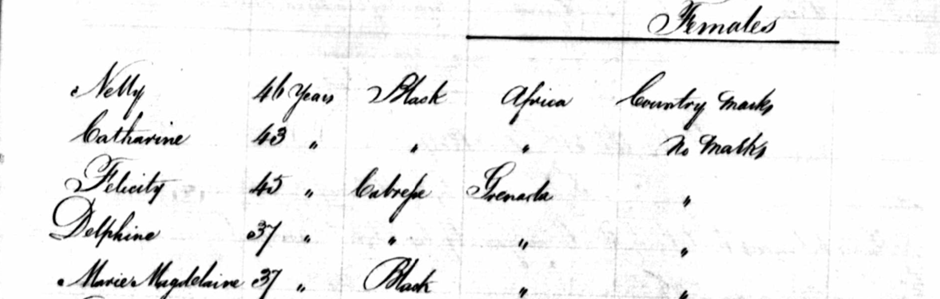 Females
Nelly 46 Years Black Africa Country Marks
Catharine 43 " " " No Marks
Felicity 45 " Cabresse Grenada "
Delphine 37 " " " "
Marie Magdelaine 37 " Black " "